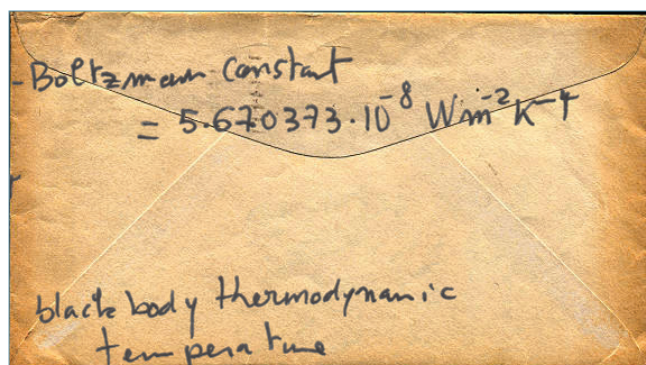 -Boltzmann Constant
= 5.670373·10⁻⁸ Wm⁻² K⁻⁴
black body thermodynamic
temperature